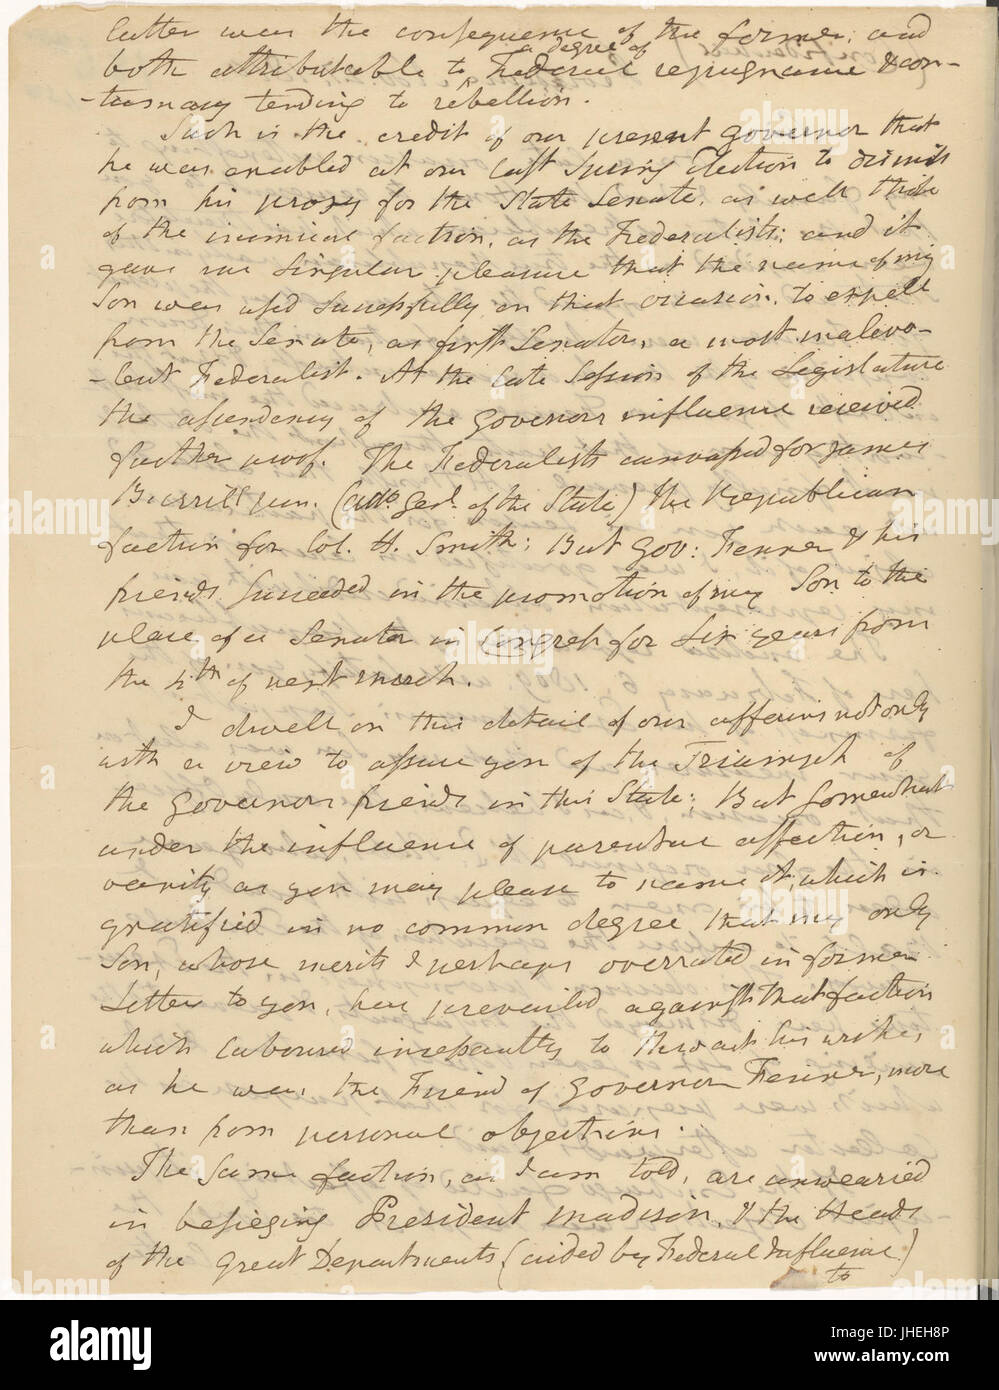 latter was the consequence of the former; and
both attributable to a degree of Federal repugnance & con-
-tumacy tending to rebellion.
Such is the credit of our present Governor that
he was enabled at our last Spring Election to dismiss
from his proxy for the State Senate, as well those
of the inimical faction, as the Federalists; and it
gave me singular pleasure that the name of my
Son was used successfully on that occasion, to expell
from the Senate, as first Senator, a most malevo-
-lent Federalist. At the late Session of the Legislature
the ascendency of the Governors influence received
further proof. The Federalists canvassed for James
Burrill jun. (Atto. Genl. of the State) the Republican
faction for Col. H. Smith; But Gov: Fenner & his
friends succeeded in the promotion of my Son to the
place of a Senator in Congress for Six years from
the 4th of next march.
I dwell on this detail of our affairs not only
with a view to assure you of the Triumph of
the Governors friends in this State; But somewhat
under the influence of parental affection, or
vanity as you may please to name it, which is
gratified in no common degree that my only
Son, whose merits I perhaps overrated in former
Letters to you, has prevailed against that faction
which laboured incessantly to thwart his wishes,
as he was the Friend of Governor Fenner, more
than from personal objections.
The same faction, as I am told, are unwearied
in besieging President Madison, & the Heads
of the Great Departments (aided by Federal Influence)
to
alamy
Image ID: JHEH8P
www.alamy.com